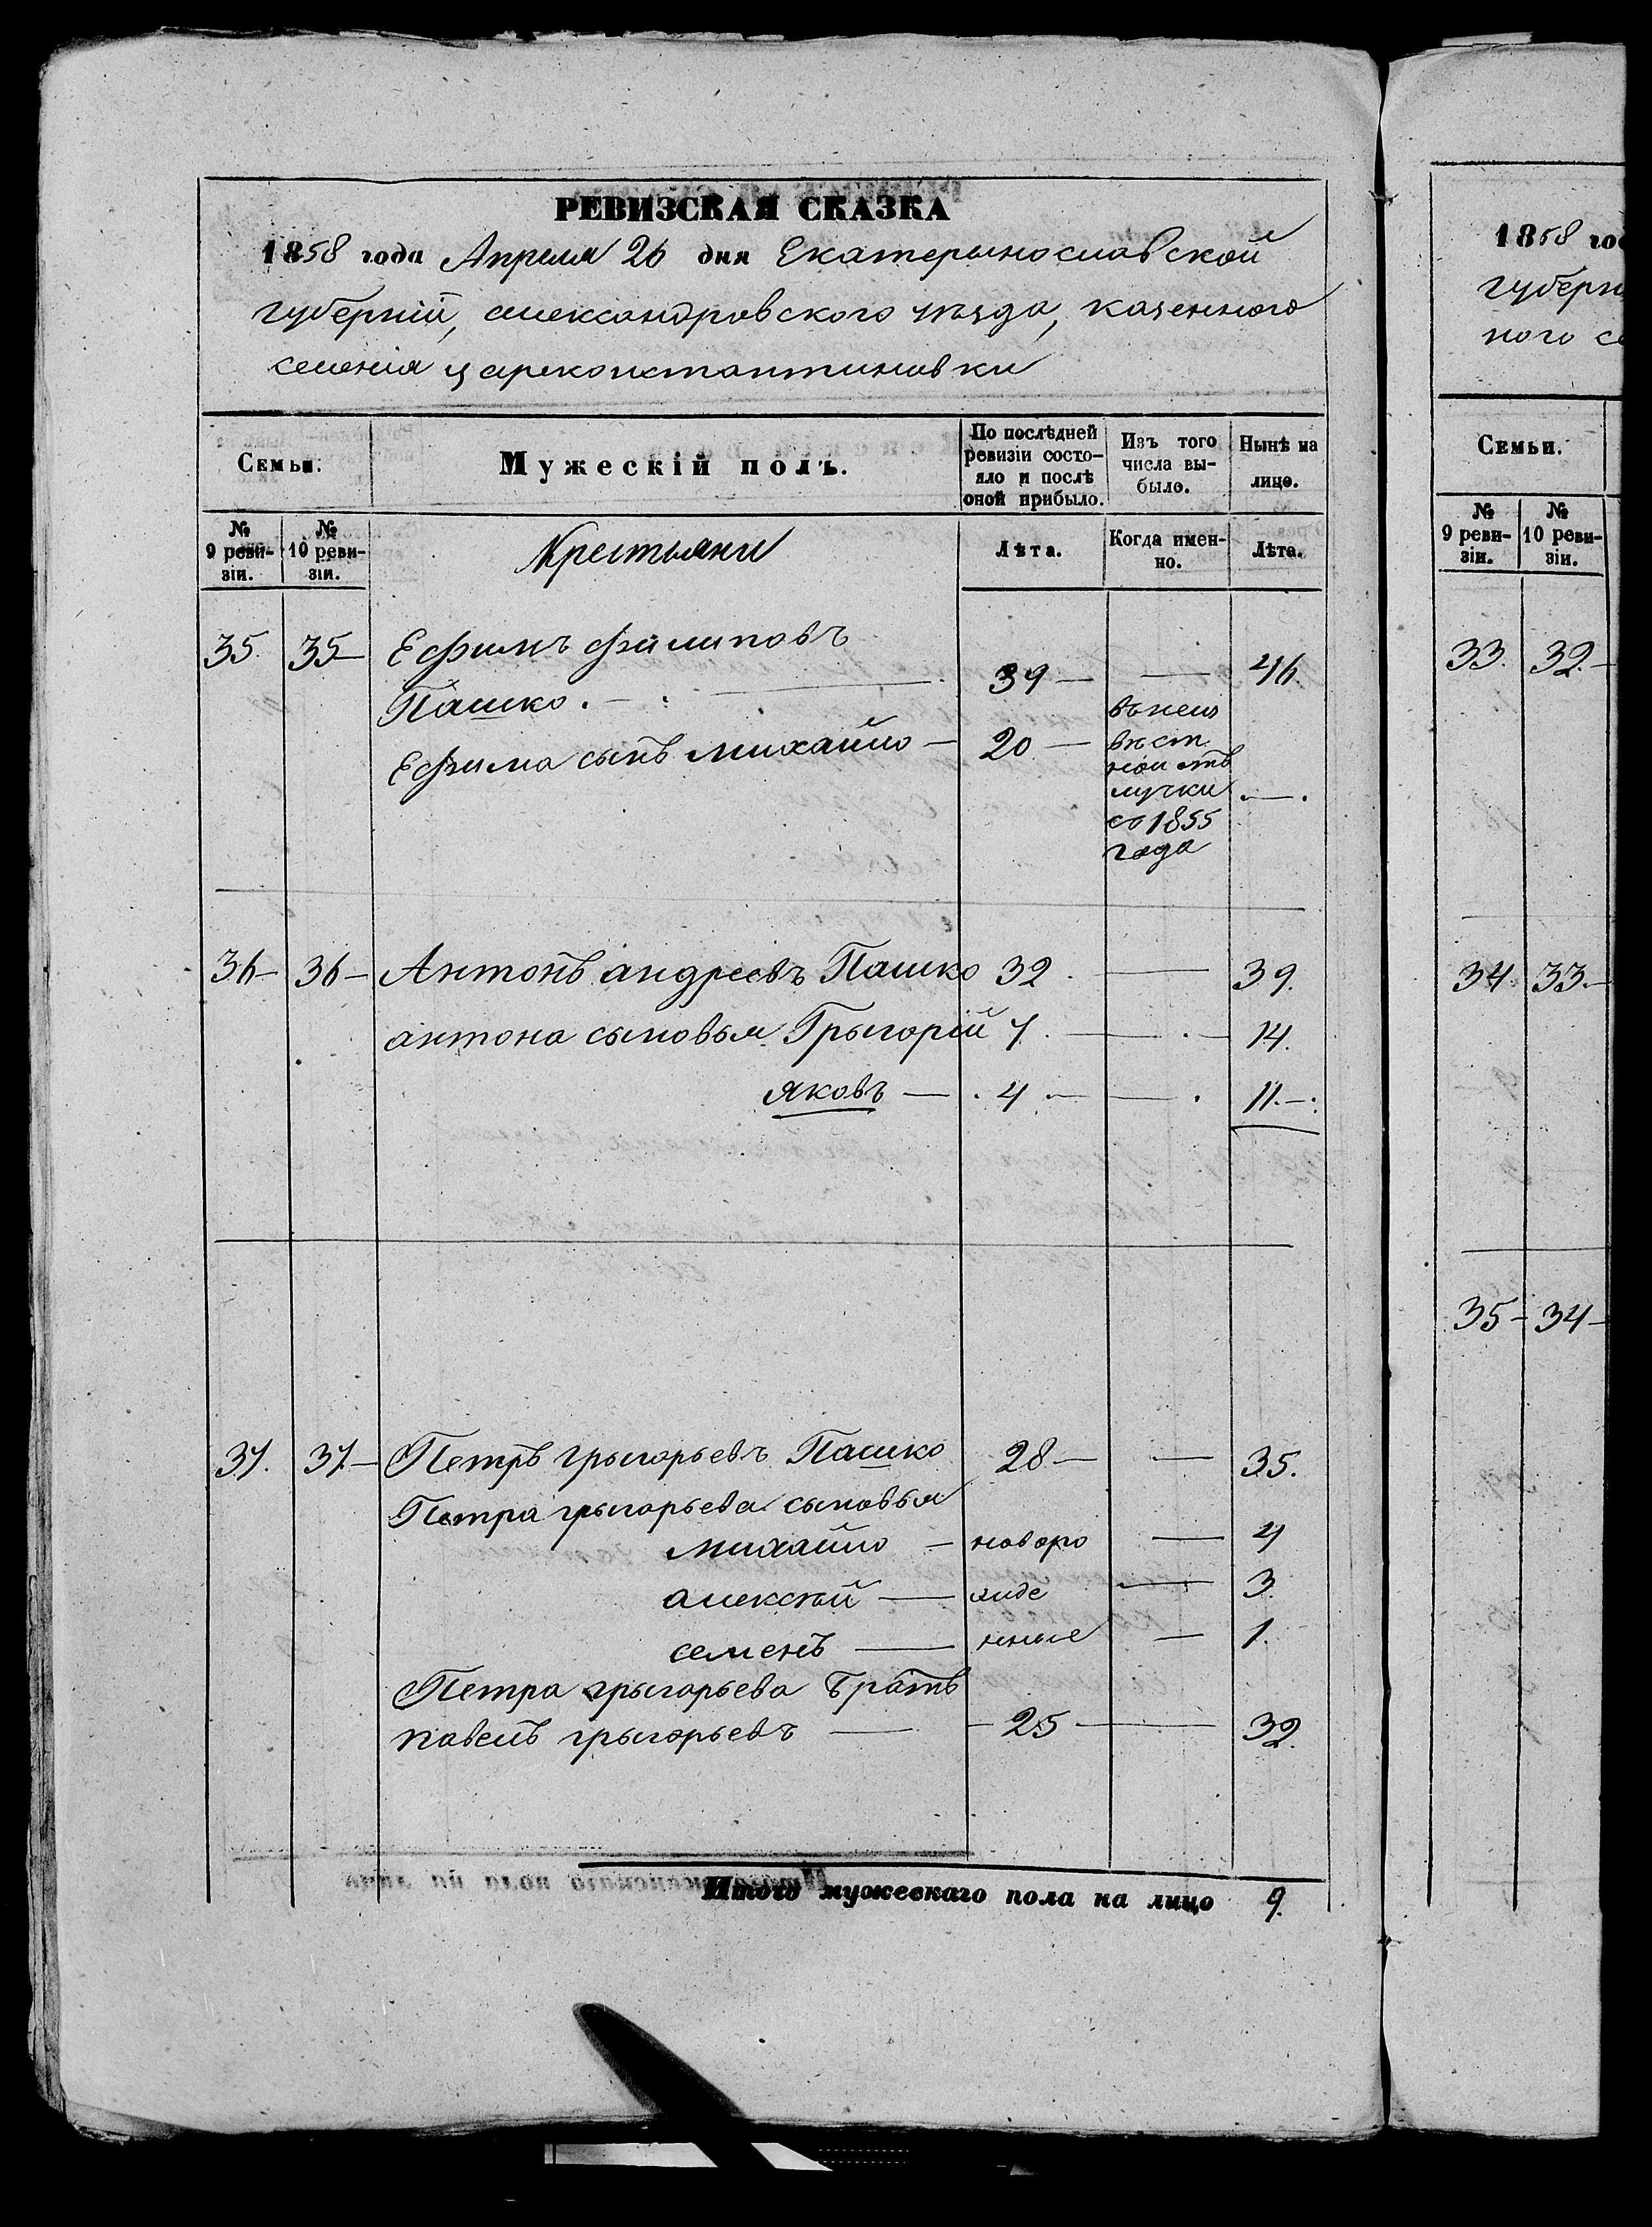 РЕВИЗСКАЯ СКАЗКА
1858 года Апреля 26 дня Екатерынославской
губерній, александровского уѣзда, казенного
селенія цареконстантиновки
Семьи. Мужескій полъ. По послѣдней ревизіи состо- яло и послѣ оной прибыло. Изъ того числа вы- было. Нынѣ на лицо.
№ 9 реви- зіи. № 10 реви- зіи. Крестьяни Лѣта. Когда имен- но. Лѣта.
35. 35 — Ефимъ филиповъ
Пашко . — 39 — — 46.
Ефима сынъ михайло — 20 — въ неиз
вѣст
ной отъ
лучки — .
со 1855
года
36 — 36 — Антонъ андреевъ Пашко 32 . — 39.
антона сыновья Грыгорій 7. — . — 14.
яковъ — . 4 . — — . 11. — .
37. 37 — Петръ грыгорьевъ Пашко 28 — — 35.
Петра грыгорьева сыновья
михайло — новоро — 4
алексѣй — жде — 3.
семенъ — нные — 1.
Петра грыгорьева братъ
павелъ грыгорьевъ — — 25 — — 32.
Итого мужескаго пола на лицо 9.
1858 го
губерн
ного се
Семьи.
№ 9 реви- зіи. № 10 реви- зіи.
33. 32. —
34 33. —
35 — 34 —